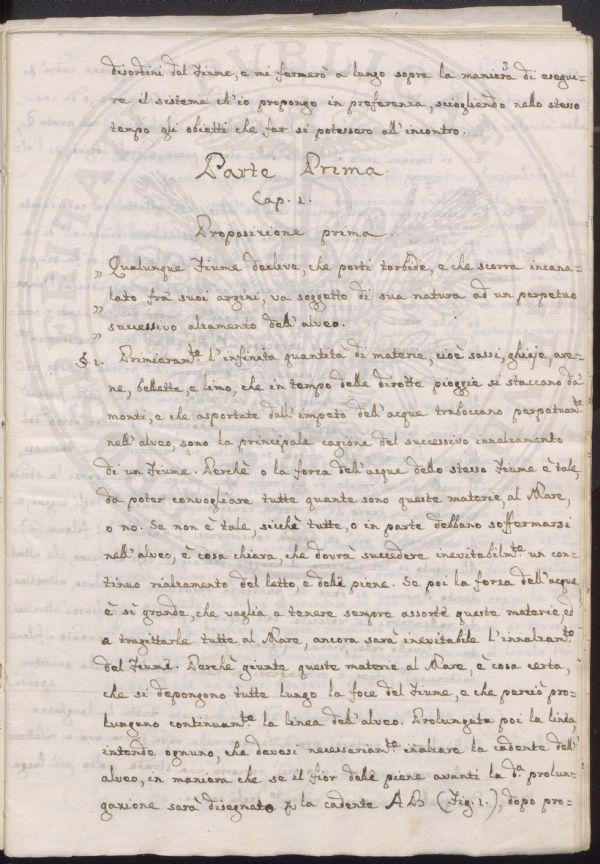 3
disordini del Fiume, e mi fermerò a lungo sopra la maniera di esegui=
re il sistema ch'io propongo in preferenza, sciogliendo nello stesso
tempo gli obietti che far si potessero all'incontro.
Parte Prima.
Cap. 1.
Proposizione prima.
„ Qualunque Fiume declive, che porti torbide, e che scorra incana=
lato frà suoi argini, va soggetto di sua natura ad un perpetuo
„ successivo alzamento dell'alveo.
„
§. 1. Primieram.te l'infinita quantità di materie, cioè sassi, ghiaje, are=
ne, belletta, e limo, che in tempo delle dirotte pioggie si staccano da'
monti, e che asportate dall'impeto dell'acque traboccano perpetuam.te
nell'alveo, sono la principale cagione del successivo innalzamento
di un Fiume. Perchè o la forza dell'acque dello stesso Fiume è tale,
da poter convogliare tutte quante sono queste materie, al Mare,
o no. Se non è tale, sicchè tutte, o in parte debbano soffermarsi
nell'alveo, è cosa chiara, che dovrà succedere inevitabilm.te un con=
tinuo rialzamento del letto, e delle piene. Se poi la forza dell'acque
è sì grande, che vaglia a tenere sempre assorte queste materie, ed
a tragittarle tutte al Mare, ancora sarà inevitabile l'innalzam.to
del Fiume. Perchè giunte queste materie al Mare, è cosa certa,
che si depongono tutte lungo la foce del Fiume, e che perciò pro=
lungano continuam.te la linea dell'alveo. Prolungata poi la linea
intende ognuno, che devesi necessariam.te inalzare la cadente dell'
alveo, in maniera che se il fior delle piene avanti la d.a prolun=
gazione sarà disegnato p la cadente AB (Fig. 1.), dopo pro=